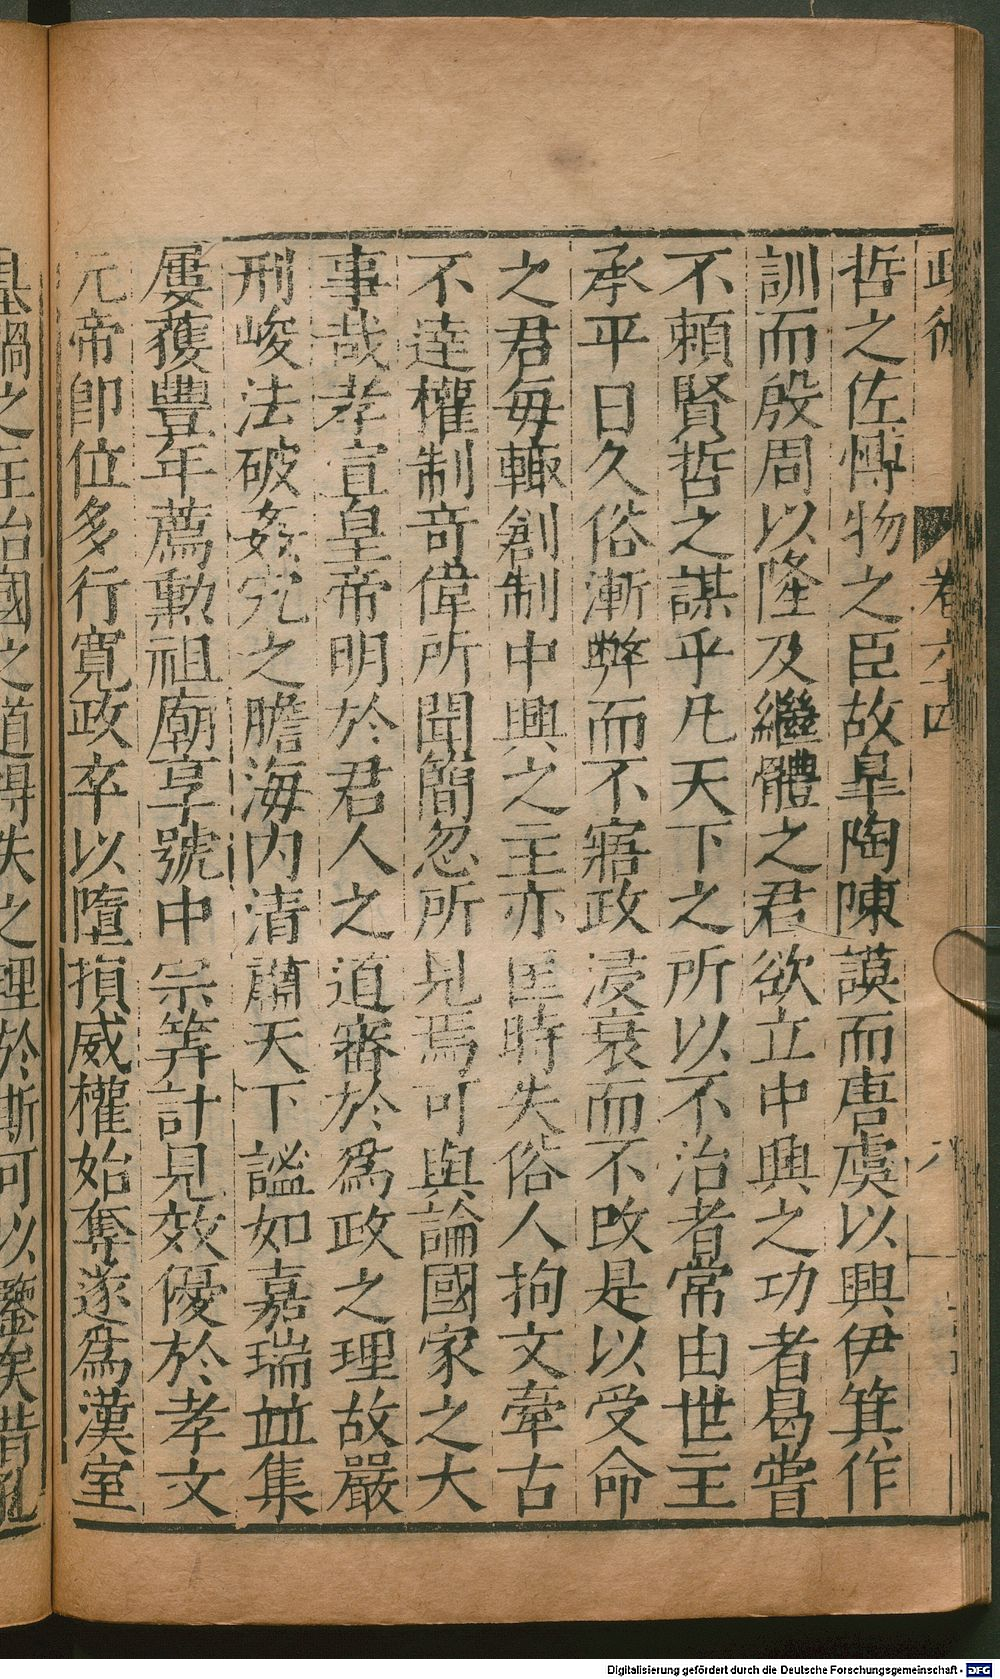 政術
卷六十四
八
哲之佐博物之臣故臯陶陳謨而唐虞以興伊箕作
訓而殷周以隆及繼體之君欲立中興之功者曷嘗
不賴賢哲之謀乎凡天下之所以不治者常由世主
承平日久俗漸弊而不寤政浸衰而不改是以受命
之君每輙創制中興之主亦匡時失俗人拘文牽古
不達權制竒偉所聞簡忽所見焉可與論國家之大
事哉孝宣皇帝明於君人之道審於爲政之理故嚴
刑峻法破姦宄之膽海内清肅天下謐如嘉瑞並集
屢獲豐年薦勲祖廟享號中宗筭計見效優於孝文
元帝卽位多行寬政卒以墮損威權始奪遂爲漢室
基禍之主治國之道得失之理於斯可以鑒矣昔孔
Digitalisierung gefördert durch die Deutsche Forschungsgemeinschaft - DFG